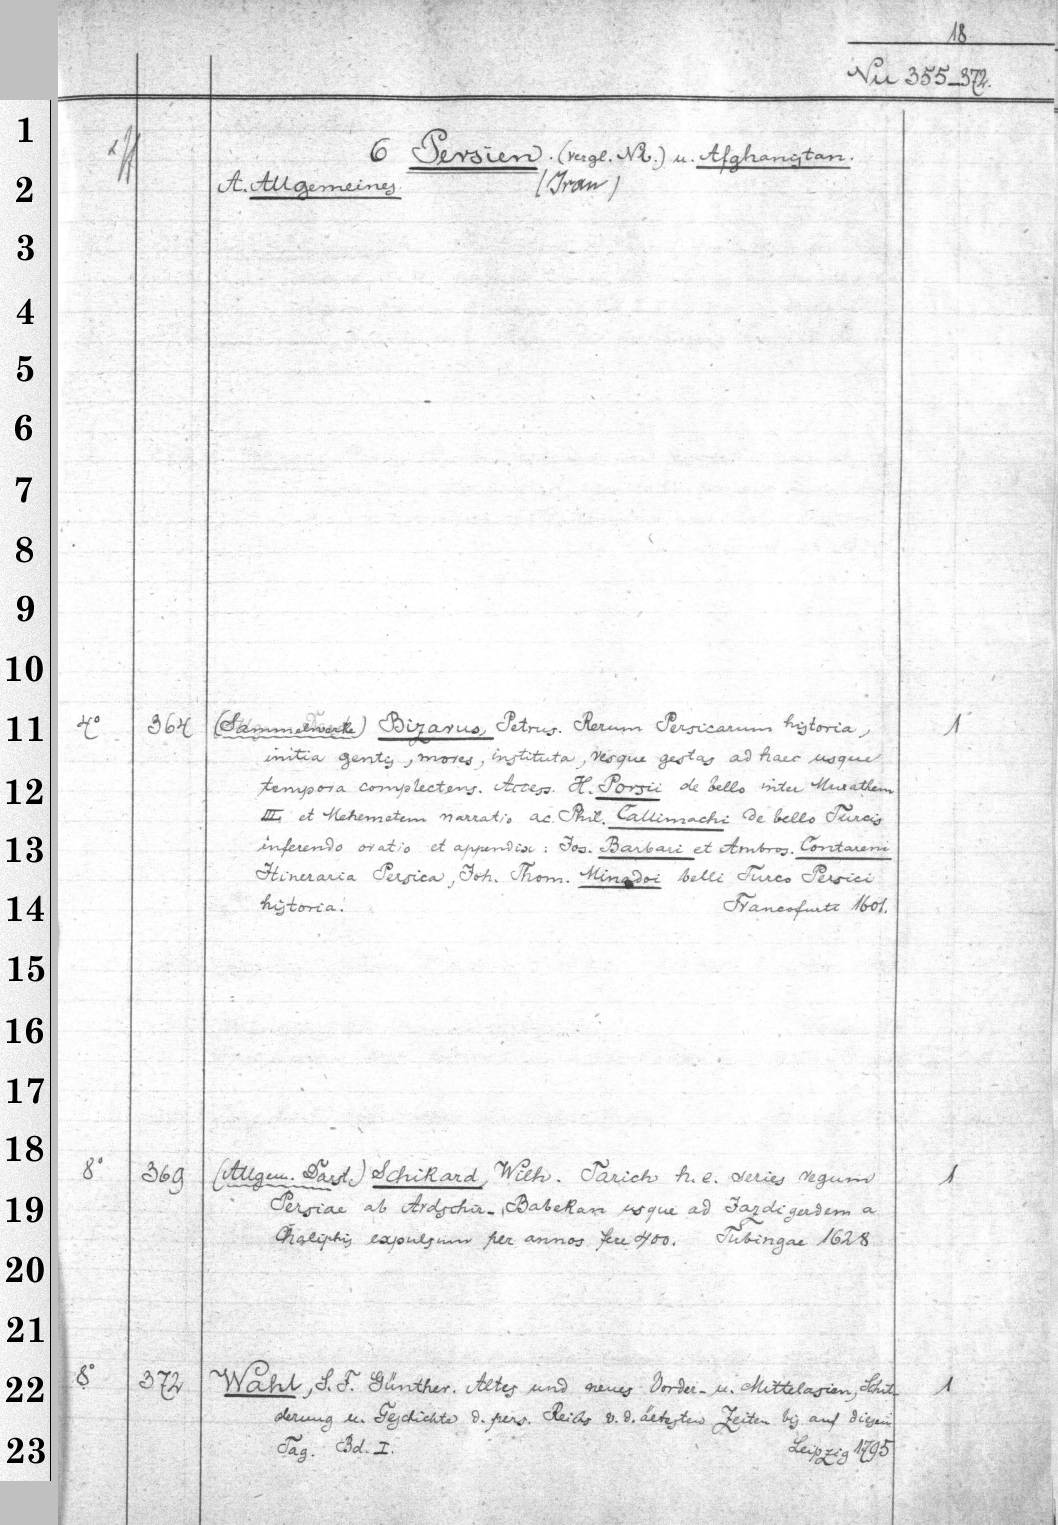 18
Nu 355-372.
6 Persien. (vergl. Nk.) u. Afghanistan.
A. Allgemeines. (Iran)
4° 364 (Sammelwerke) Bizarus, Petrus. Rerum Persicarum historia, 1
initia gentis, mores, instituta, resque gestas ad haec usque
tempora complectens. Access. H. Porsii de bello inter Murathem
III. et Mehemetem narratio ac. Phil. Callimachi de bello Turcis
inferendo oratio et appendix: Jos. Barbari et Ambros. Contareni
Itineraria Persica, Joh. Thom. Minadoi belli Turco Persici
historia. Francofurti 1601.
8° 369 (Allgem. Darst.) Schikard, Wilh. Tarich h. e. series regum 1
Persiae ab Ardschir-Babekan usque ad Jazdigerdem a
Chaliphis expulsum per annos fere 400. Tubingae 1628
8° 372 Wahl, S. F. Günther. Altes und neues Vorder- u. Mittelasien, Schil- 1
derung u. Geschichte d. pers. Reichs v. d. ältesten Zeiten bis auf diesen
Tag. Bd. I. Leipzig 1795
1
2
3
4
5
6
7
8
9
10
11
12
13
14
15
16
17
18
19
20
21
22
23